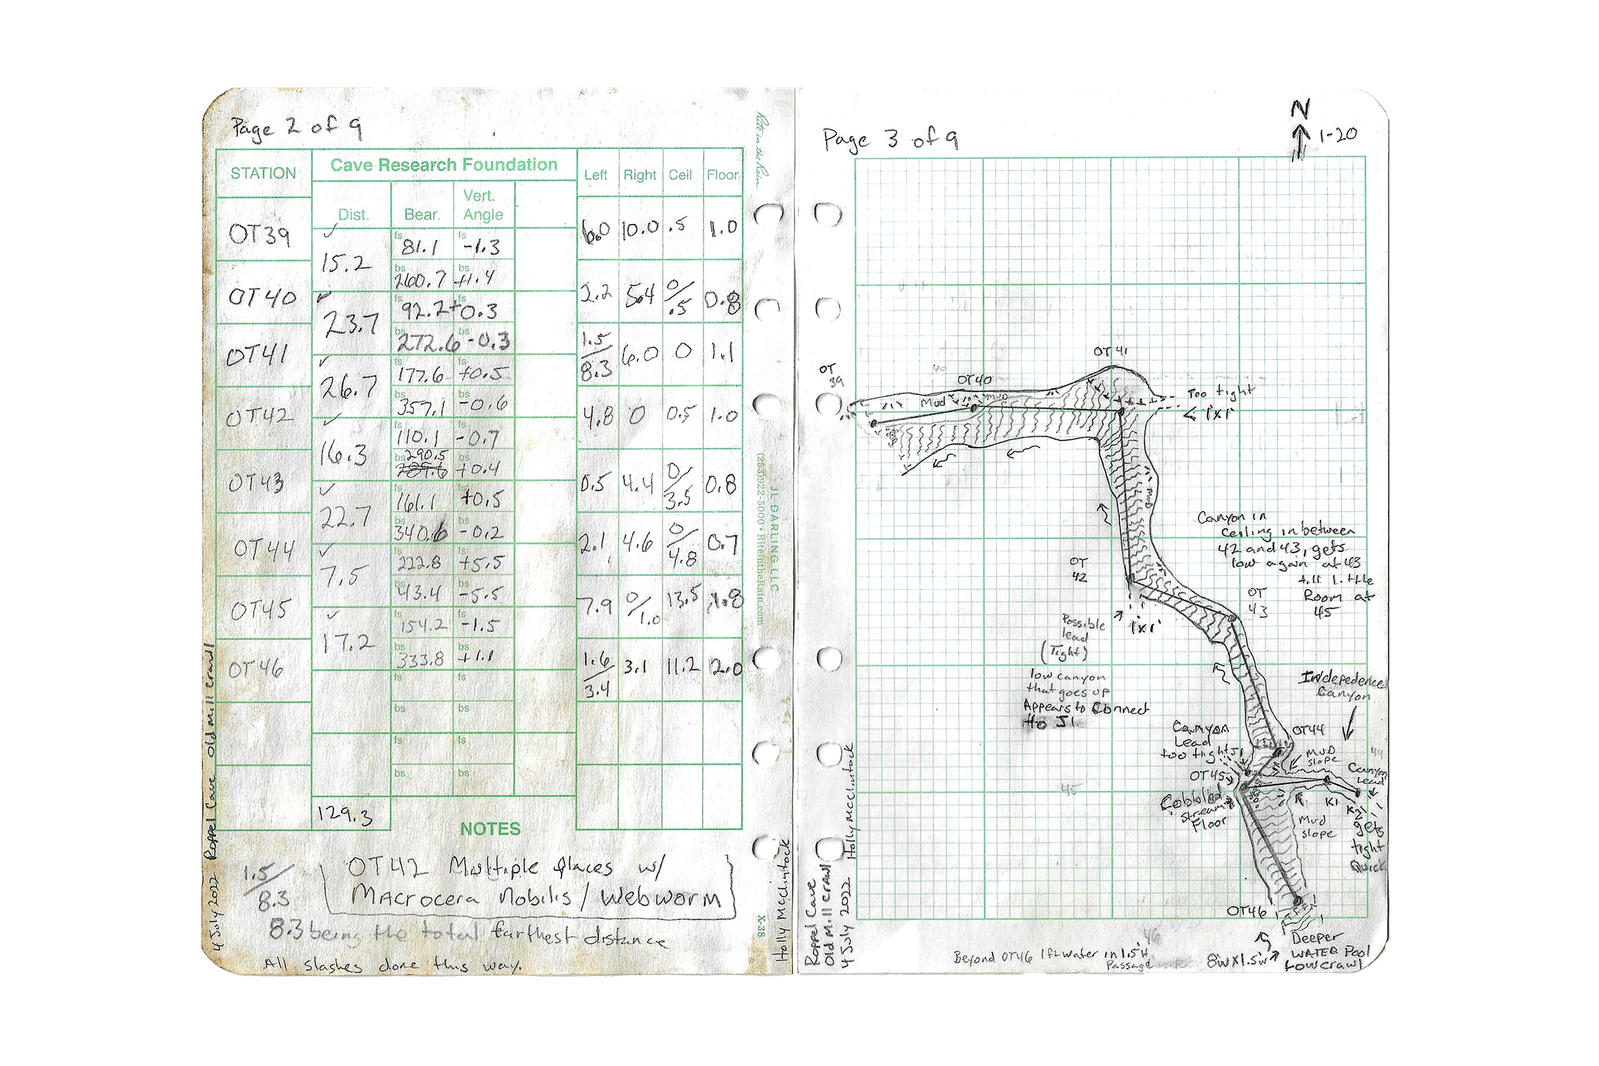 Page 2 of 9
STATION
Cave Research Foundation
Dist.
Bear.
Vert.
Angle
Left
Right
Ceil
Floor
OT39
6.0 10.0 .5 1.0
15.2
fs 81.1 fs -1.3
bs 260.7 bs +1.4
OT40
2.2 5.4 0/.5 0.8
23.7
fs 92.2 +0.3
bs 272.6 bs -0.3
OT41
1.5/8.3 6.0 0 1.1
26.7
fs 177.6 fs +0.5
bs 357.1 bs -0.6
OT42
4.8 0 0.5 1.0
16.3
fs 110.1 fs -0.7
bs 290.5
bs +0.4
OT43
0.5 4.4 0/3.5 0.8
22.7
fs 161.1 fs +0.5
bs 340.6 bs -0.2
OT44
2.1 4.6 0/4.8 0.7
7.5
fs 222.8 fs +5.5
bs 43.4 bs -5.5
OT45
7.9 0/1.0 13.5 1.8
17.2
fs 154.2 fs -1.5
bs 333.8 bs +1.1
OT46
1.6/3.4 3.1 11.2 2.0
fs fs
bs bs
fs fs
bs bs
129.3
NOTES
1.5/8.3
OT42 Multiple places w/
Macrocera Nobilis / Webworm
8.3 being the total farthest distance
All slashes done this way.
4 July 2022 Roppel Cave Old Mill Crawl
Holly McClintock
Rite in the Rain
JL DARLING LLC
(253)922-5000 • RiteintheRain.com
X-38
Page 3 of 9
N
1-20
OT
39
40
OT40
OT 41
Mud
Too tight
1x1
Mud
OT
42
1x1
Possible
lead
(Tight)
low canyon
that goes up
Appears to Connect
to J1
Canyon in
Ceiling in between
42 and 43, gets
low again at 43
till little
Room at
45
OT
43
Indepedence
Canyon
OT44
44
Canyon
Lead
too tight
J1
OT45
Mud
slope
Canyon
Lead
K1
K2
gets
tight
Quick
Mud
slope
45
Cobbled
stream
Floor
OT46
46
Deeper
WATER Pool
Low crawl
8'w x 1.5'H
Beyond OT46 1 ft water in 1.5'H
Passage
Roppel Cave
Old Mill Crawl
4 July 2022 Holly McClintock